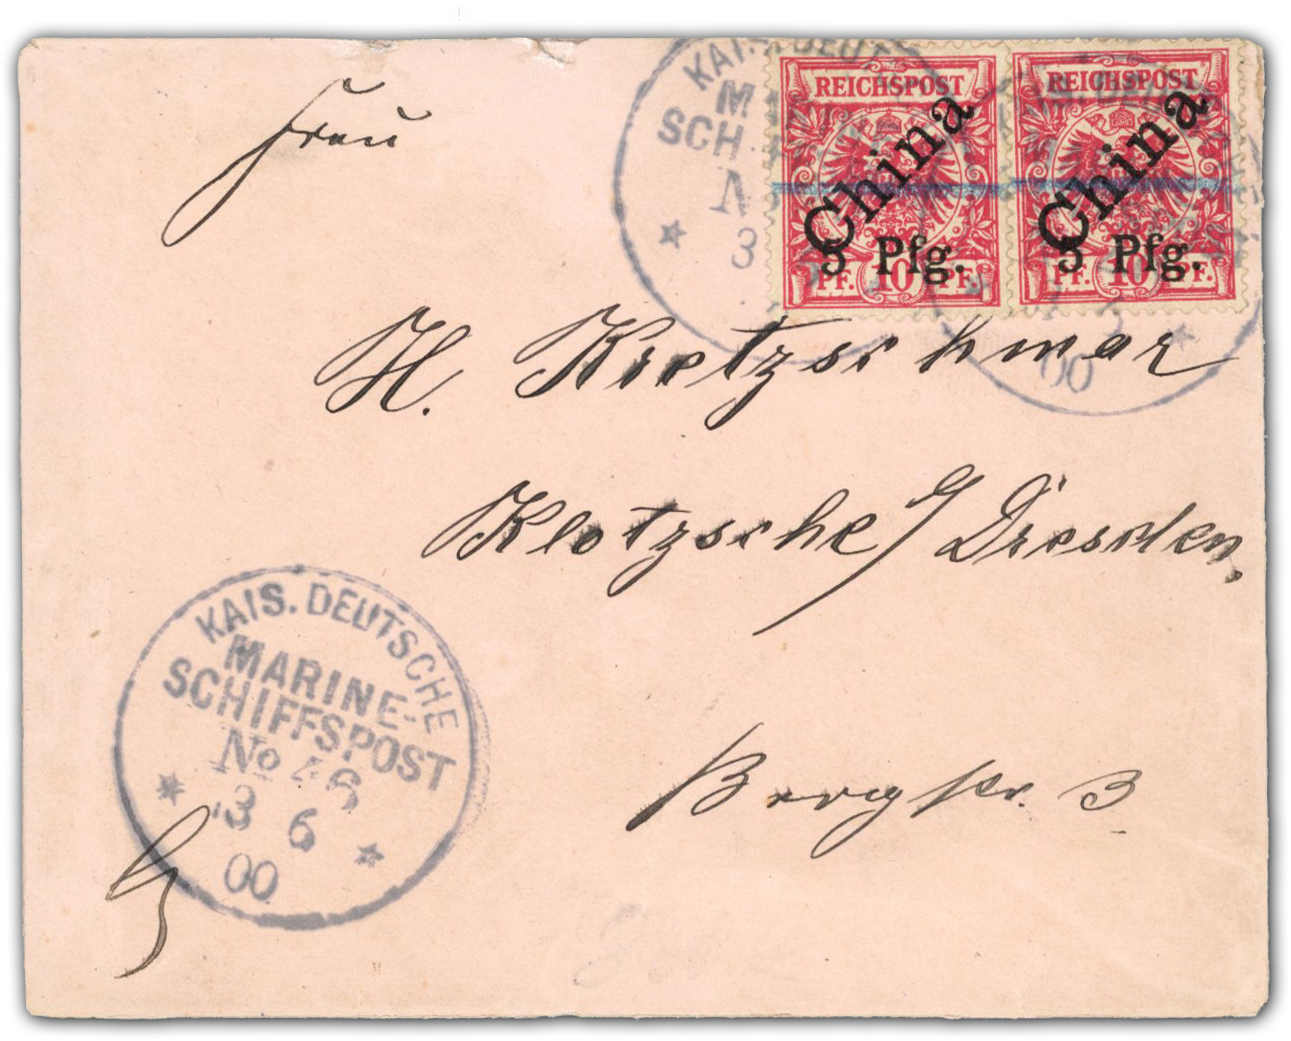 Frau
H. Kretzschmar
Klotzsche / Dresden,
Bergstr. 3
REICHSPOST
China
5 Pfg.
PF. 10 PF.
REICHSPOST
China
5 Pfg.
PF. 10 PF.
KAIS. DEUT
SCH
3
00
KAIS. DEUTSCHE
MARINE-
SCHIFFSPOST
No 46
3 6
00